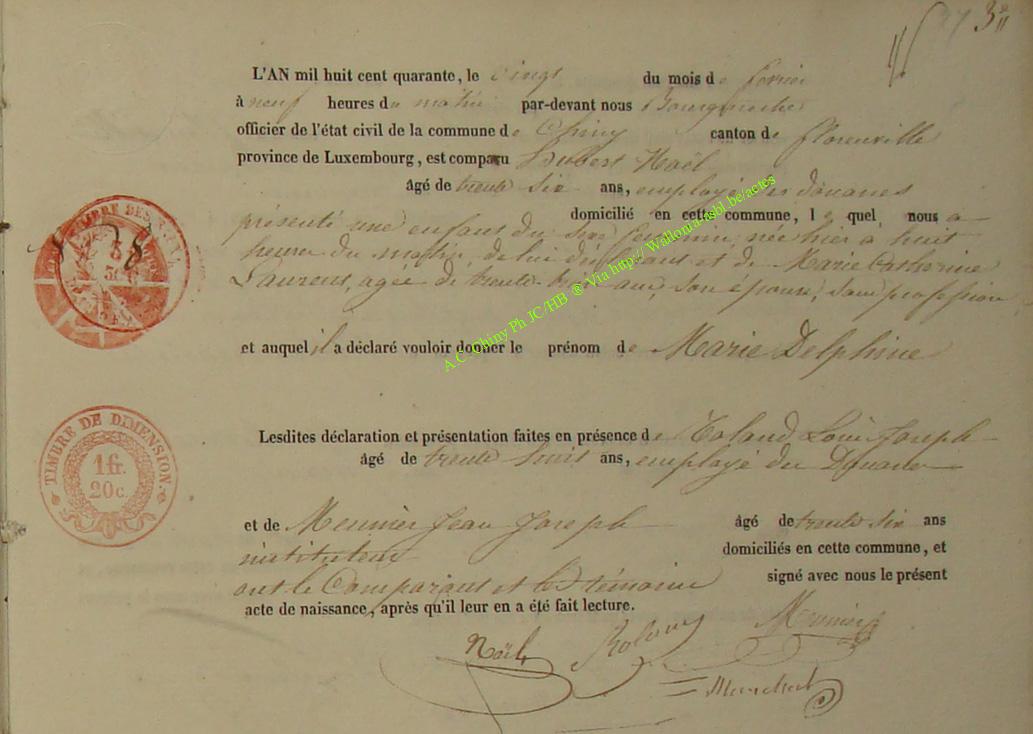 37 3
L'AN mil huit cent quarante, le vingt du mois de février
à neuf heures du matin par-devant nous Bourgmestre
officier de l'état civil de la commune de Chiny canton de florenville
province de Luxembourg, est comparu Hubert Noël
âgé de trente six ans, employé des douanes
domicilié en cette commune, lequel nous a
présenté une enfant du sexe féminin, née hier à huit
heure du matin, de lui déclarant et de Marie Catherine
Laurent, agée de trente ans, son épouse, sans profession
et auquel il a déclaré vouloir donner le prénom de Marie Delphine
Lesdites déclaration et présentation faites en présence de Roland Louis Joseph
âgé de trente huit ans, employé des Douanes
et de Meunier Jean Joseph âgé de trente six ans
instituteur domiciliés en cette commune, et
ont le Comparant et les témoins signé avec nous le présent
acte de naissance, après qu'il leur en a été fait lecture.
Noël Roland Meunier
TIMBRE DE DIMENSION.
1 fr.
20 c.
A.C. Chiny Ph JC/HB ® Via http:// Wallonia.asbl.be/actes